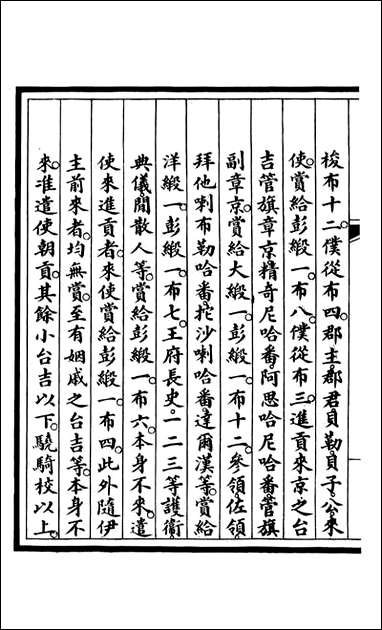 梭布十二。僕從布四。郡主。郡君。貝勒。貝子。公。來
使。賞給彭緞一。布八。僕從布三。進貢來京之台
吉。管旗章京。精奇尼哈番。阿思哈尼哈番。管旗
副章京。賞給大緞一。彭緞一。布十二。參領。佐領。
拜他喇布勒哈番。拖沙喇哈番。達爾漢等。賞給
洋緞一。彭緞一。布七。王府長史。一二三等護衛。
典儀。閒散人等。賞給彭緞一。布六。本身不來。遣
使來進貢者。來使賞給彭緞一。布四。此外隨伊
主前來者。均無賞。至有姻戚之台吉等。本身不
來。准遣使朝貢。其餘小台吉以下。驍騎校以上。